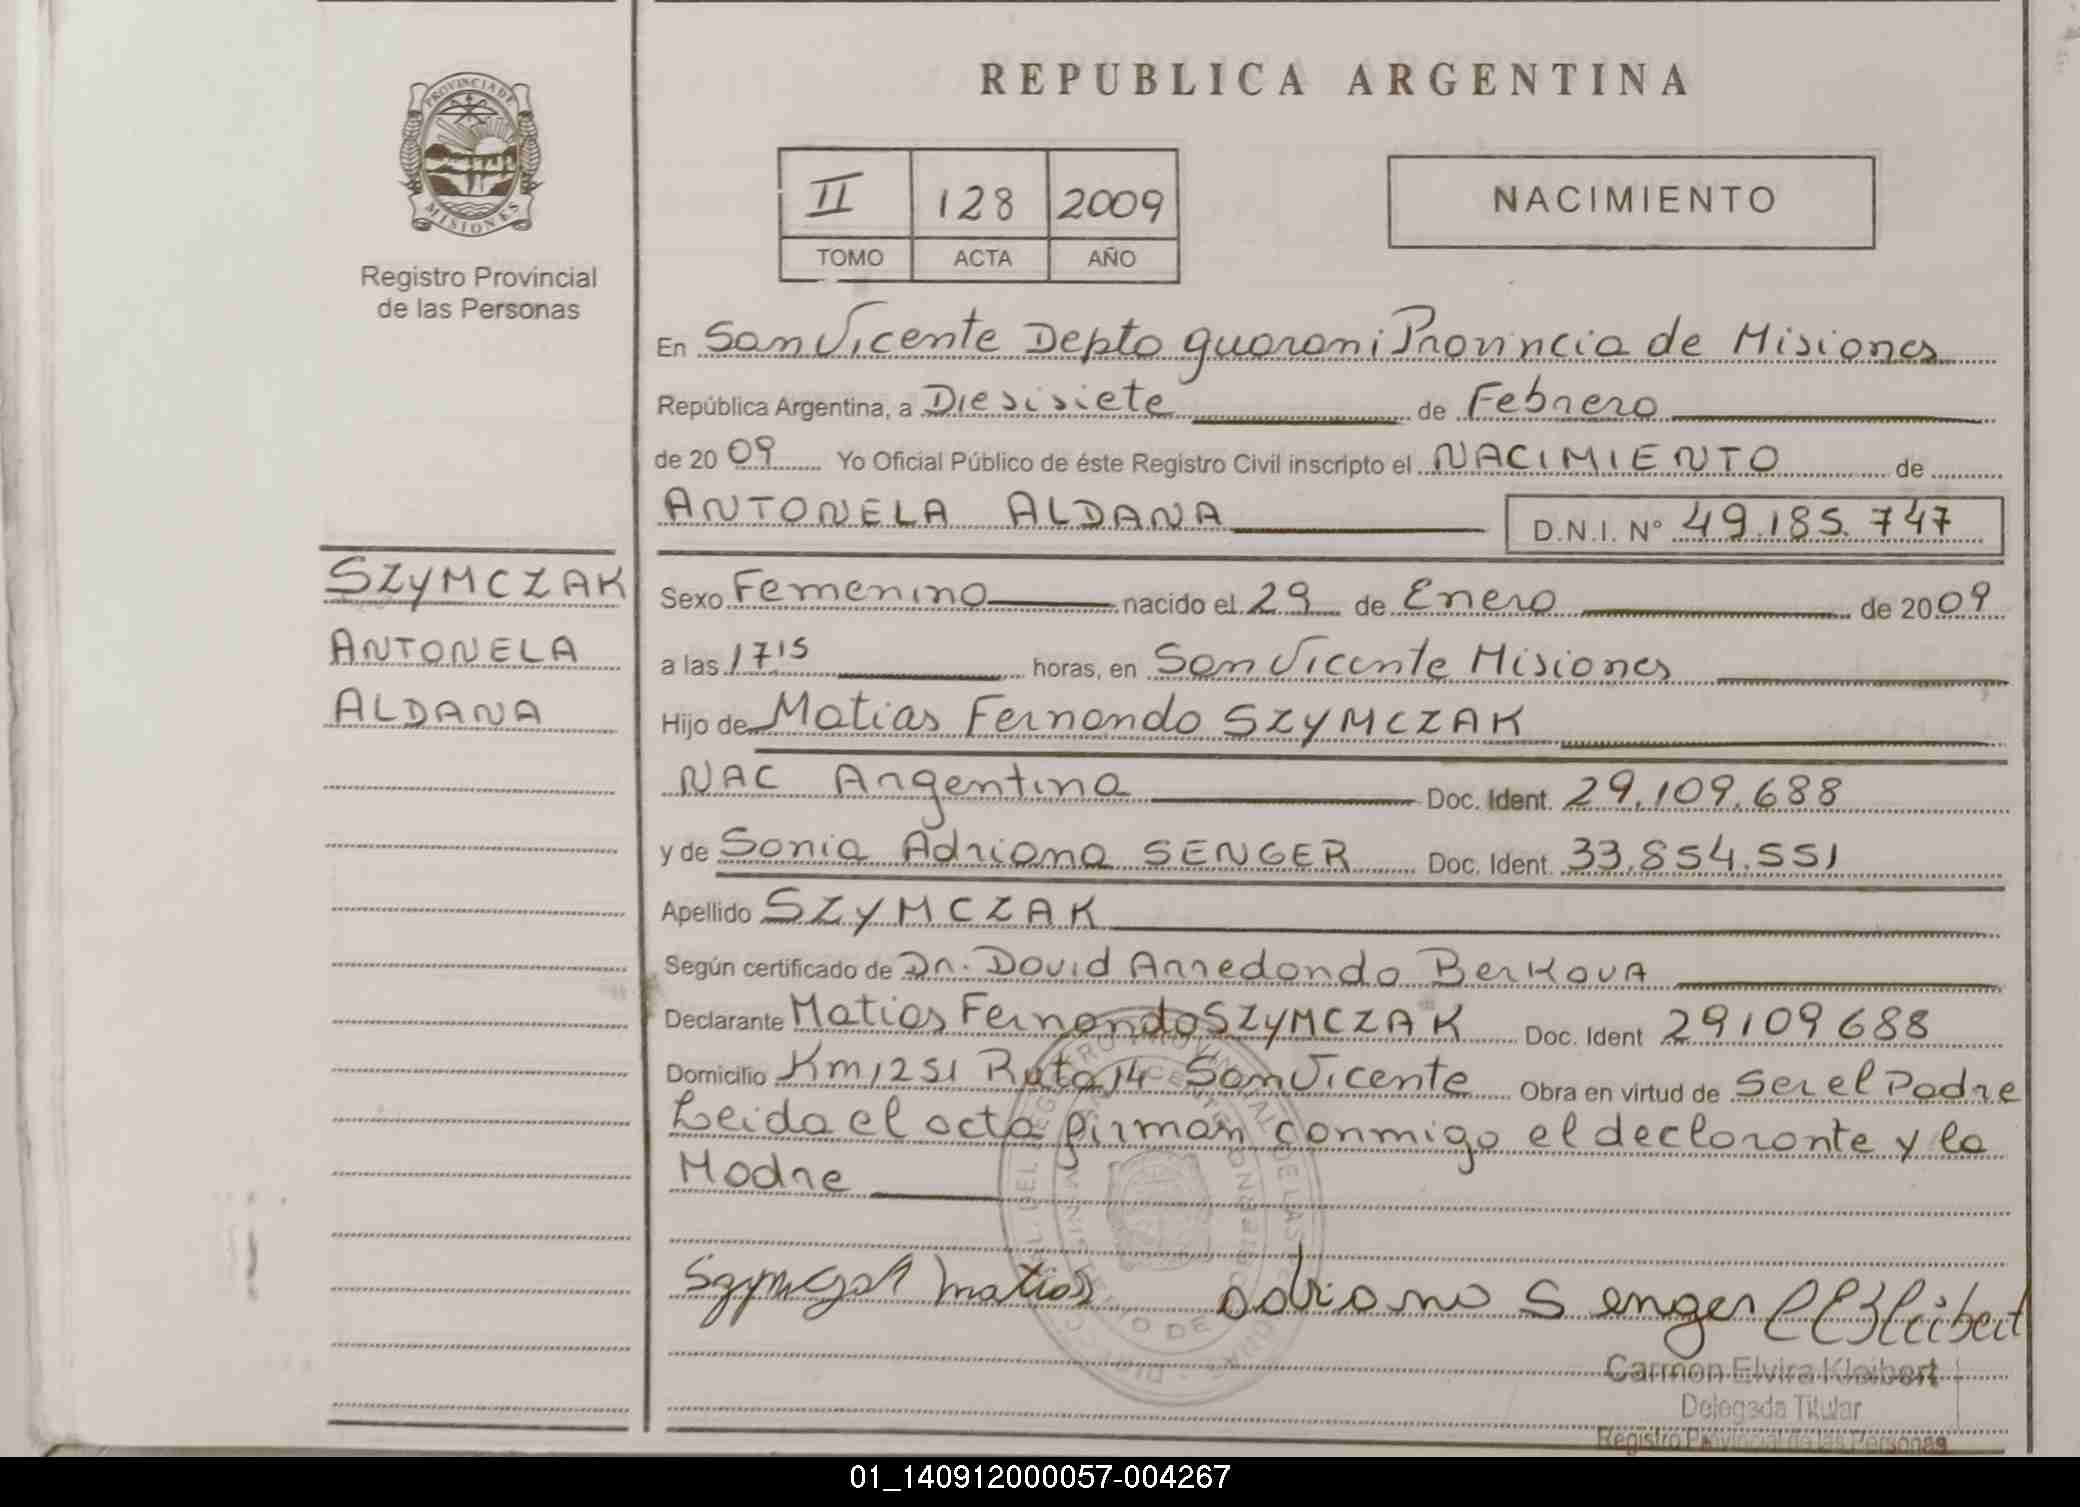 REPUBLICA ARGENTINA
PROVINCIA DE
MISIONES
Registro Provincial
de las Personas
II 128 2009
TOMO ACTA AÑO
NACIMIENTO
En San Vicente Depto guarani Provincia de Misiones
República Argentina, a Diesisiete de Febrero
de 20 09 Yo Oficial Público de éste Registro Civil inscripto el NACIMIENTO de
ANTONELA ALDANA D.N.I. N° 49.185.747
SZYMCZAK
ANTONELA
ALDANA
Sexo Femenino nacido el 29 de Enero de 2009
a las 17 15 horas, en San Vicente Misiones
Hijo de Matias Fernando SZYMCZAK
NAC Argentina Doc. Ident. 29.109.688
y de Sonia Adriana SENGER Doc. Ident. 33.854.551
Apellido SZYMCZAK
Según certificado de Dr. David Arredondo Berkova
Declarante Matias Fernando SZYMCZAK Doc. Ident 29109688
Domicilio Km 1251 Ruta 14 San Vicente Obra en virtud de Ser el Padre
Leida el acta firman conmigo el declarante y la
Madre
Szymczak Matias adriana Senger
Carmen Elvira Kleibert
Delegada Titular
Registro Provincial de las Personas
01_140912000057-004267